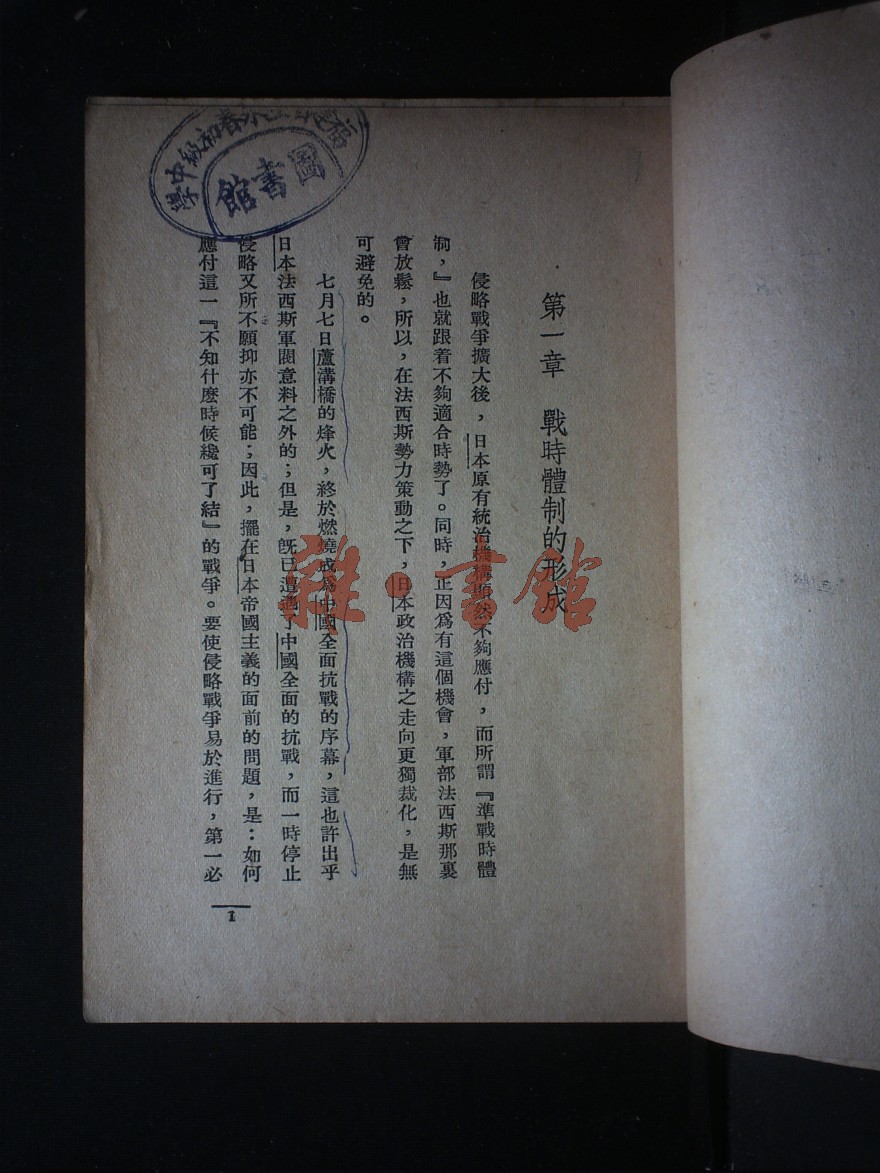 第一章　戰時體制的形成
侵略戰爭擴大後，日本原有統治機構顯然不夠應付，而所謂『準戰時體
制，』也就跟着不夠適合時勢了。同時，正因爲有這個機會，軍部法西斯那裏
會放鬆，所以，在法西斯勢力策動之下，日本政治機構之走向更獨裁化，是無
可避免的。
七月七日蘆溝橋的烽火，終於燃燒成爲中國全面抗戰的序幕，這也許出乎
日本法西斯軍閥意料之外的；但是，旣已遭遇了中國全面的抗戰，而一時停止
侵略又所不願抑亦不可能；因此，擺在日本帝國主義的面前的問題，是：如何
應付這一『不知什麼時候纔可了結』的戰爭。要使侵略戰爭易於進行，第一必
1
春初級中學
圖書館
雜·書館